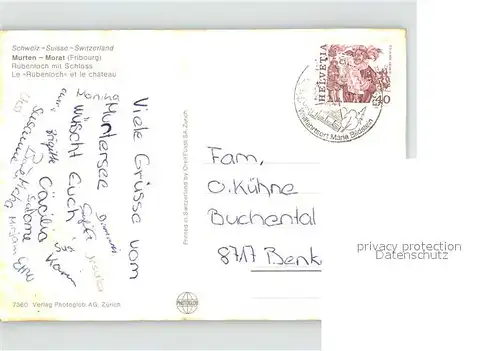 Schweiz - Suisse - Switzerland
Murten - Morat (Fribourg)
Rübenloch mit Schloss
Le «Rübenloch» et le château
HELVETIA
40
Wallfahrtsort Maria Bildstein
Viele Grüsse vom
Murtensee
wünscht Euch
Monika
Brigitte
Cäcilia
Karin
Ursula
Salome
Mirjam
Printed in Switzerland by Orell Füssli SA, Zürich
Fam,
O. Kühne
Buchental
8717 Benk
privacy protection
Datenschutz
7360 Verlag Photoglob AG, Zürich
PHOTOGLOB